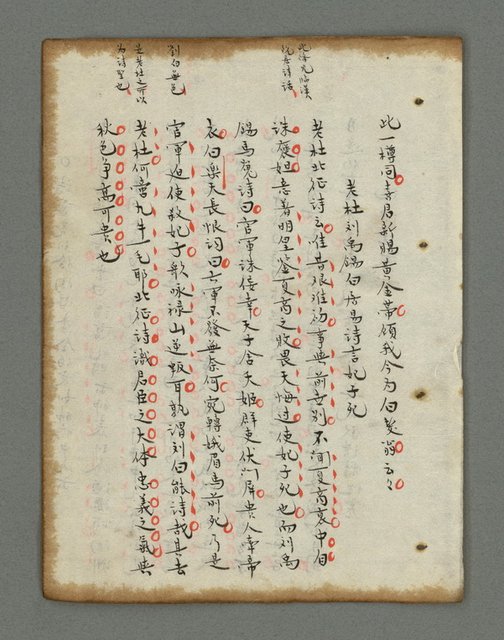 此條見臨漢
隱居诗話
劉白無色
是老杜之所以
为詩聖也
此一樽同幸君新賜黃金帶顧我今为白髮翁云々
老杜刘禹錫白居易詩言妃子死
老杜北征詩云唯昔狼狽初事與前古别不聞夏商衰中自
誅褒妲意者明皇鉴夏商之敗畏天悔過使妃子死也而刘禹
錫馬嵬詩曰官軍誅佞幸天子舍夭姬群吏伏门屏贵人牽帝
衣白樂天長恨词曰六軍不發無奈何宛轉娥眉馬前死乃是
官軍迫使殺妃子歌咏禄山逆叛耳孰謂刘白能詩哉其去
老杜何啻九牛一毛耶北征詩識君臣之大体忠義之氣與
秋色争高可貴也